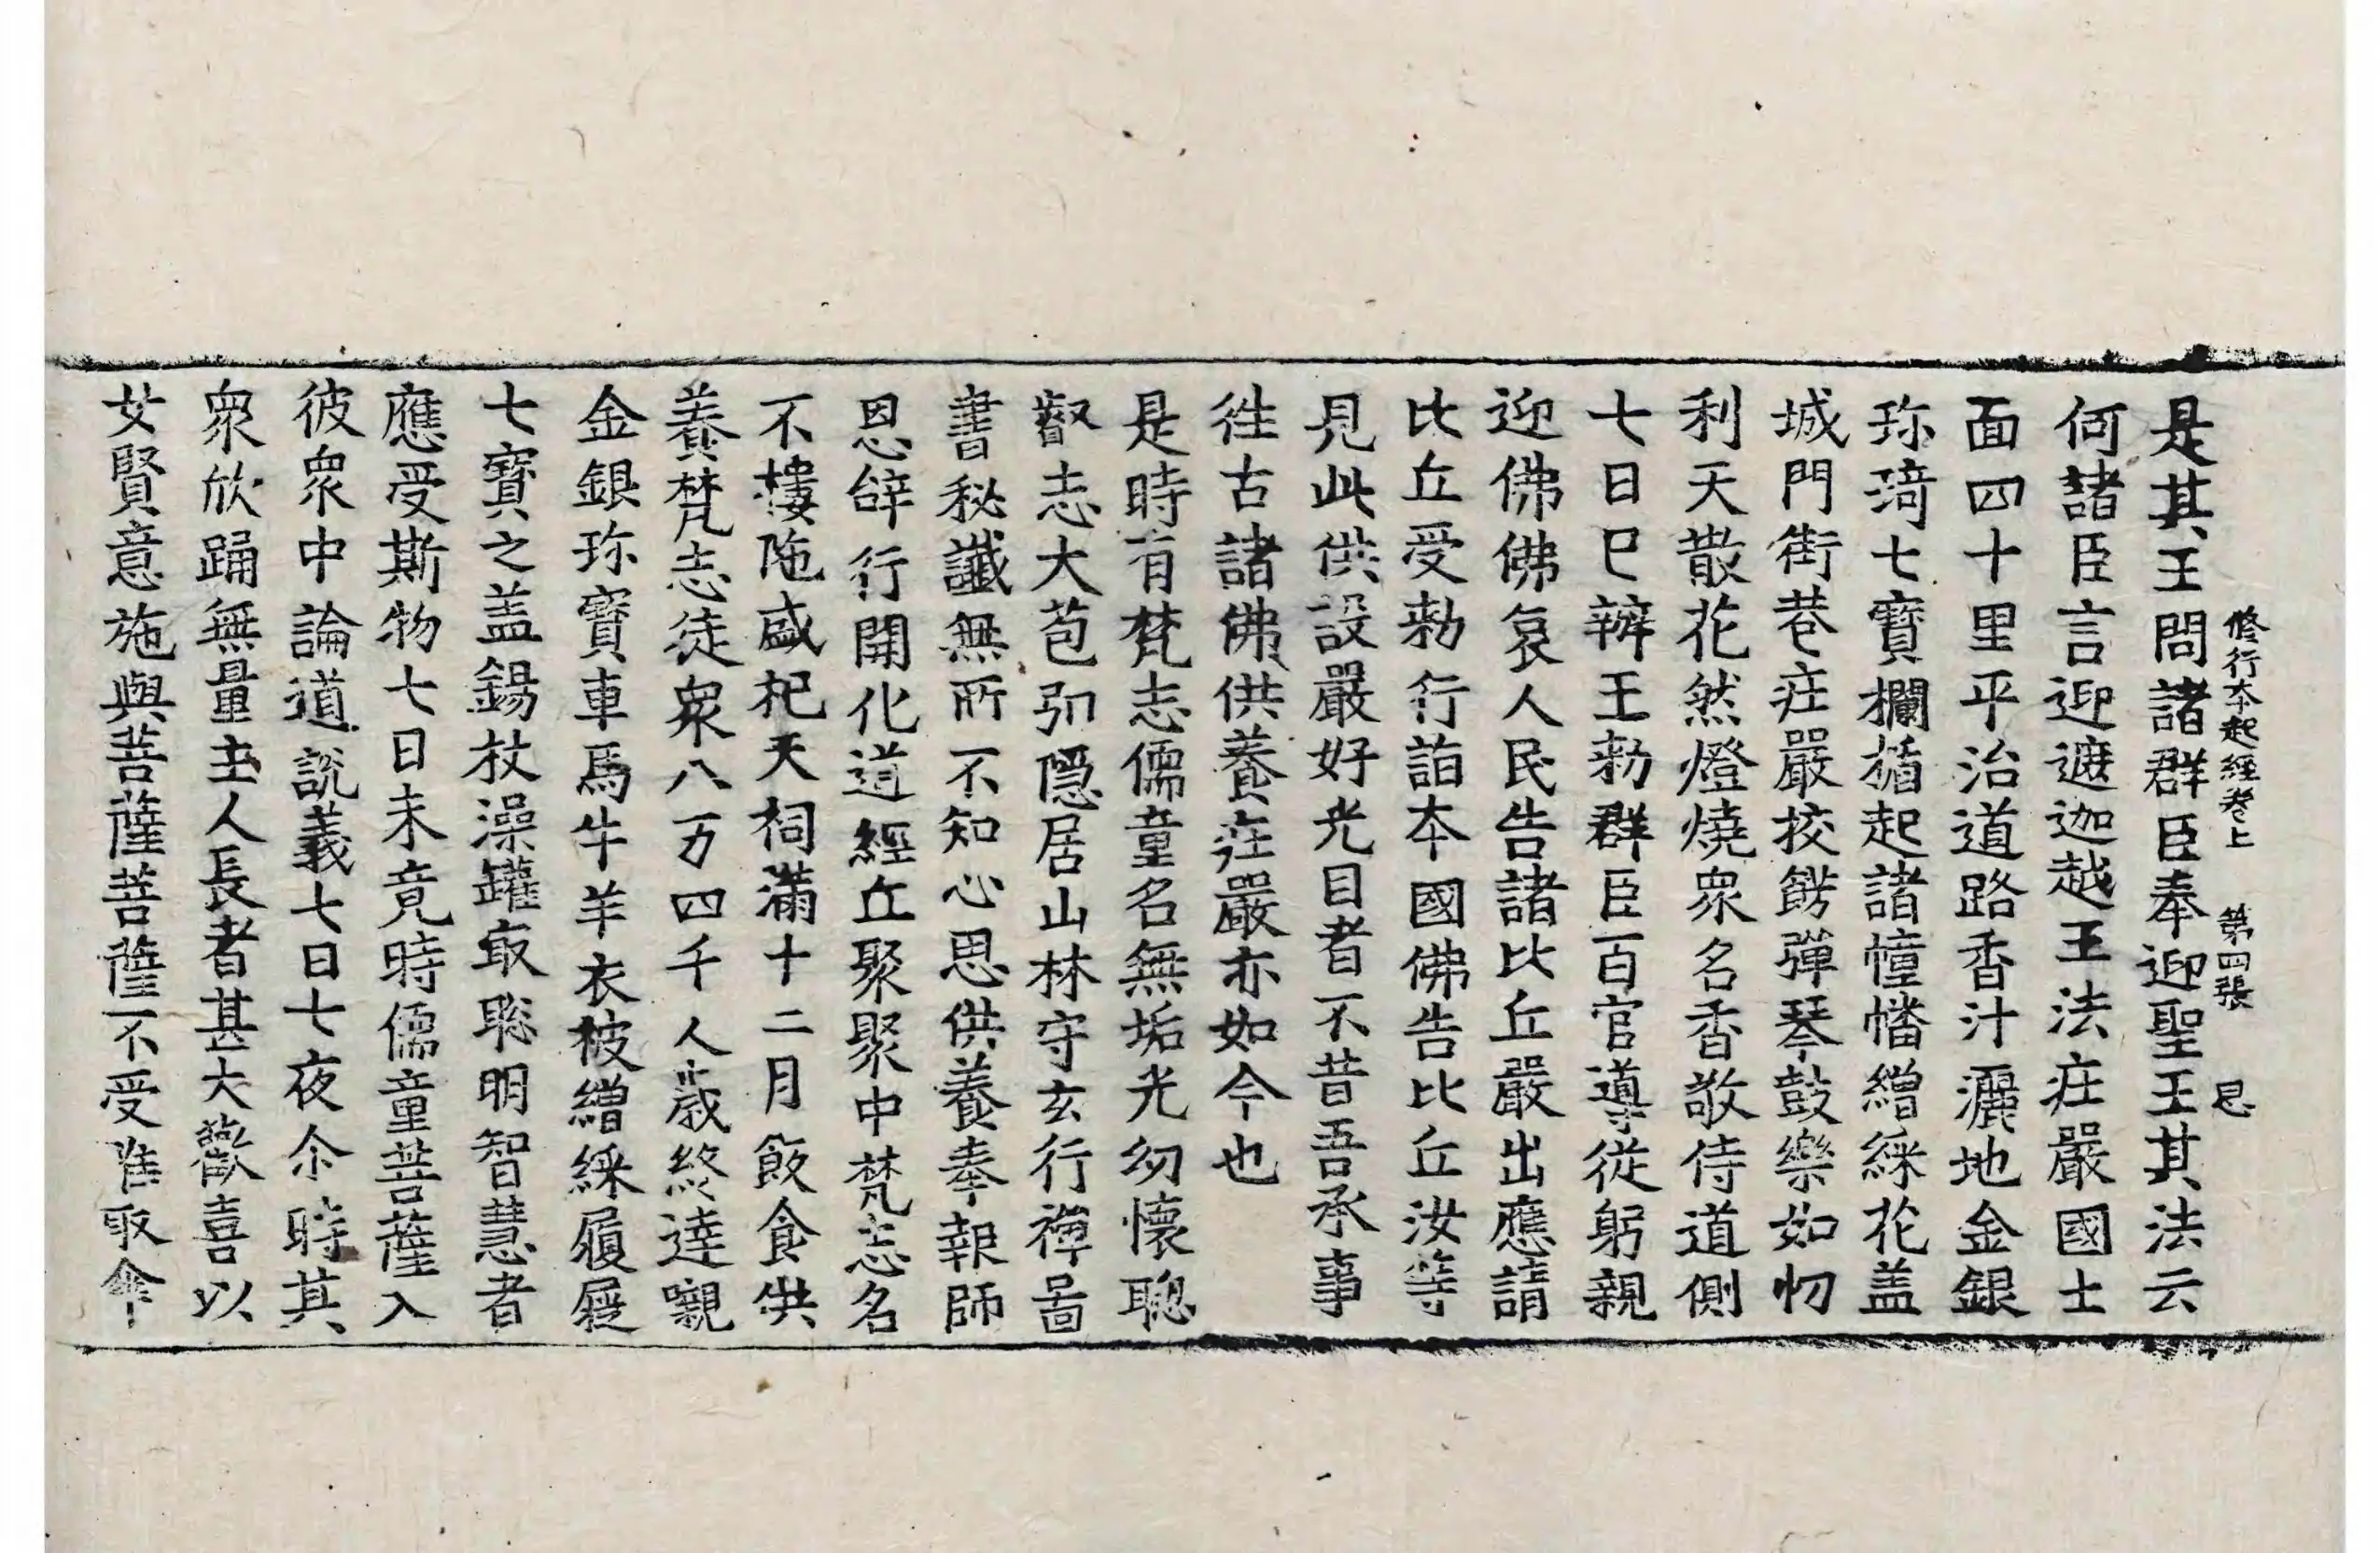 修行本起經卷上 第四張 忌
是其王問諸群臣奉迎聖王其法云
何諸臣言迎遮迦越王法庄嚴國土
面四十里平治道路香汁灑地金銀
珎琦七寶欄楯起諸幢幡繒綵花盖
城門街巷庄嚴挍餝彈琴鼓樂如忉
利天散花然燈燒衆名香敬侍道側
七日已辦王勑群臣百官導從躬親
迎佛佛哀人民告諸比丘嚴出應請
比丘受勑行詣本國佛告比丘汝等
見此供設嚴好光目者不昔吾承事
徃古諸佛供養庄嚴亦如今也
是時有梵志儒童名無垢光幼懷聰
叡志大苞弘隱居山林守玄行禪啚
書秘讖無所不知心思供養奉報師
恩辝行開化道經丘聚聚中梵志名
不樓陁盛祀天祠滿十二月飯食供
養梵志徒衆八万四千人歲終達嚫
金銀珎寶車馬牛羊衣被繒綵履屣
七寶之盖錫杖澡罐㝡聡明智慧者
應受斯物七日未竟時儒童菩薩入
彼衆中論道說義七日七夜尒時其
衆欣踊無量主人長者甚大歡喜以
女賢意施與菩薩菩薩不受唯取傘